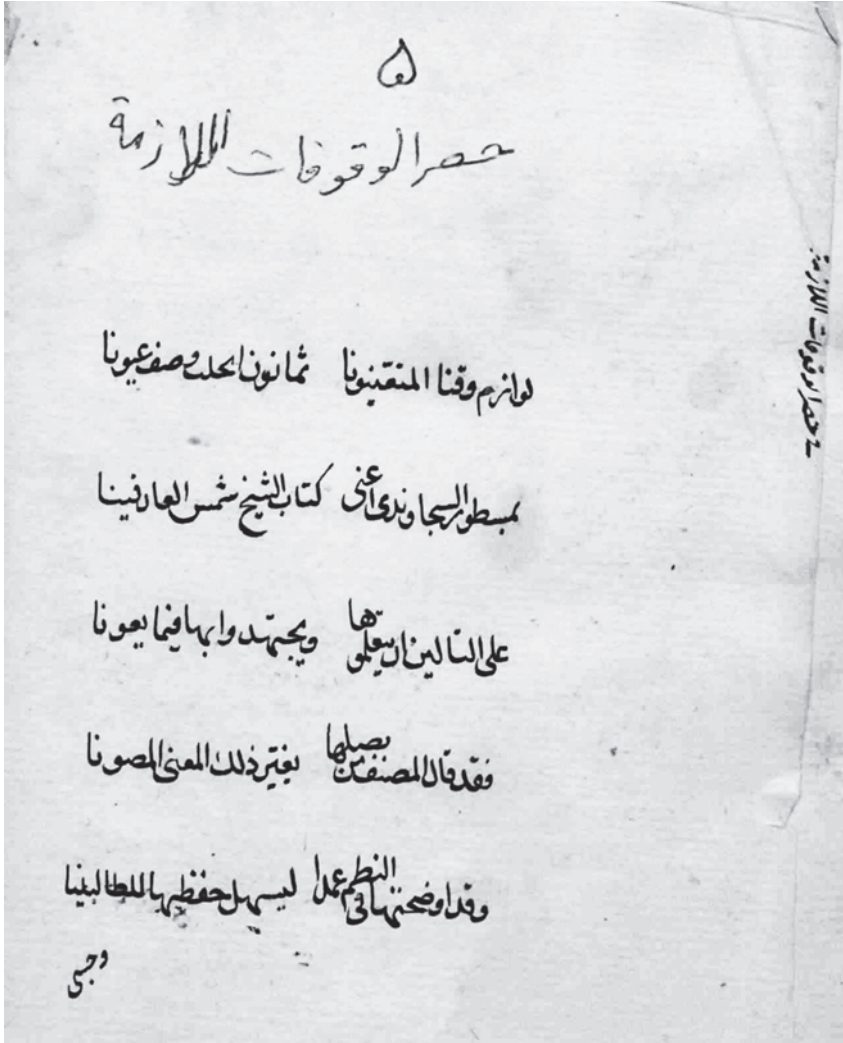 ٥
حصر الوقوفات اللازمة
لوازم وقفنا المتقينونا ثمانون انجلت وصف عيونا
بمسطور السجاوندى اعنى كتاب الشيخ شمس العارفينا
على التالين ان يتعلموها ويجتهدوا بها فيما يعونا
فقد قال المصنف من يصلها يغير ذلك المعنى المصونا
وقد اوضحتها فى النظم عمدا ليسهل حفظها للطالبينا
حصر الوقوفات اللازمة